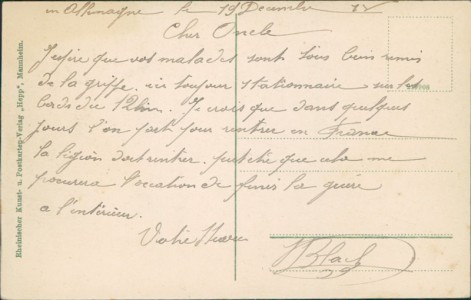 en Allemagne le 19 Decembre 18
Cher Oncle
J'espère que vos malades sont tous bien remis
de la grippe. ici toujour stationnaire sur les
bords du Rhin. Je crois que dans quelques
jours l'on part pour rentrer en France
la légion doit rentrer. peut etre que cela me
procurera l'occasion de finir la guerre
a l'intérieur.
Votre Neveu
HBlach
Rheinischer Kunst- u. Postkarten-Verlag „Hepp", Mannheim.